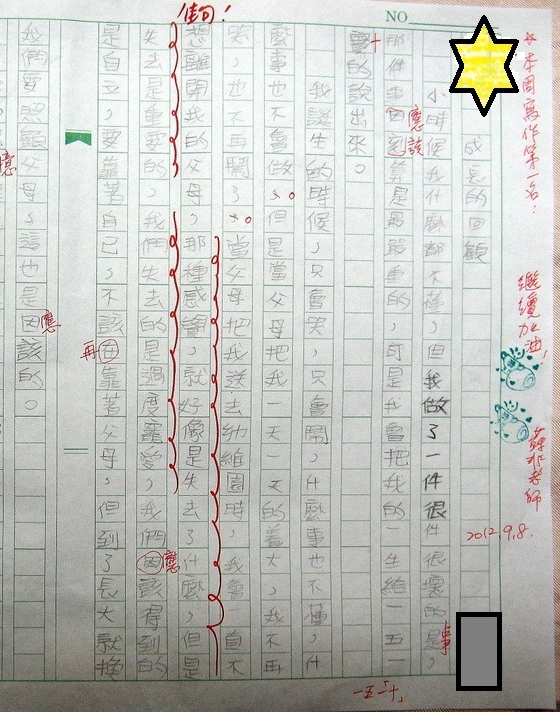 NO
本周寫作第一名!
繼續加油!
老師
2012.9.8.
成長的回顧
小時候我什麼都不懂,但我做了一件很件很壞的是,
事
那件事因該算是最嚴重的,可是我會把我的一生給一五一
應該
一五一十
的說出來。
十
我誕生的時候,只會哭,只會鬧,什麼事也不懂,什
麼事也不會做。但是當父母把我一天天的養大,我不再
哭,也不再鬧了。當父母把我送去幼維園時,我會直不
佳句!
想離開我的父母,那種感覺,就好像是失去了什麼,但是
失去是重要的,我們失去的是過度寵愛,我們因該得到的
應
是自立,要靠著自己,不該在靠著父母,但到了長大就換
再
我們要照顧父母,這也是因該的。
應